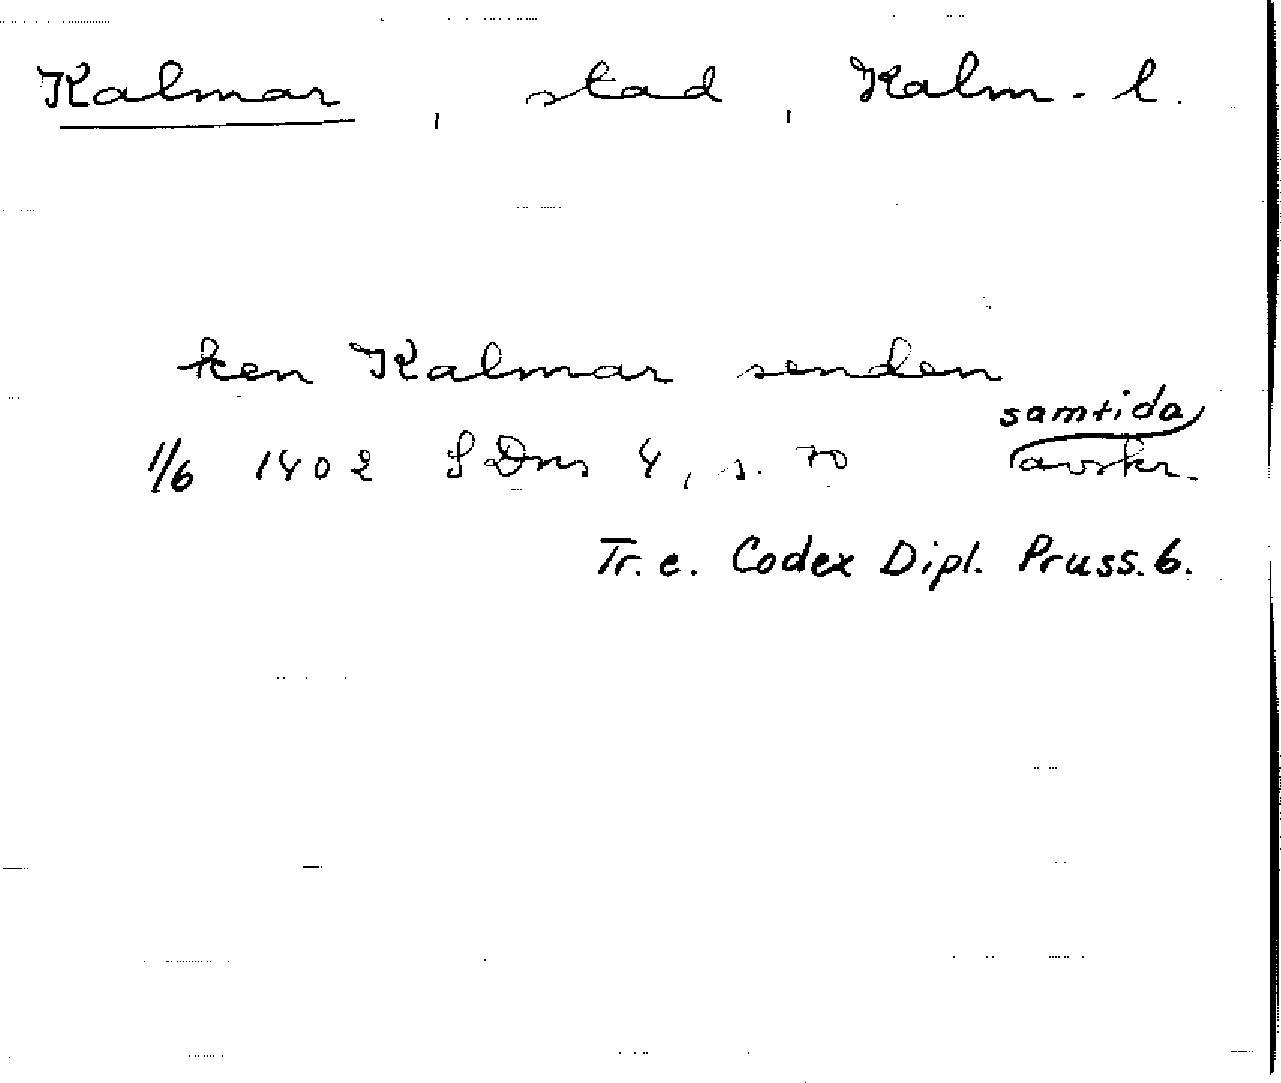 Kalmar, stad, Kalm. l.
ken Kalmar senden
samtida
1/6 1402 SDns 4, s. 70 avskr.
Tr. e. Codex Dipl. Pruss. 6.